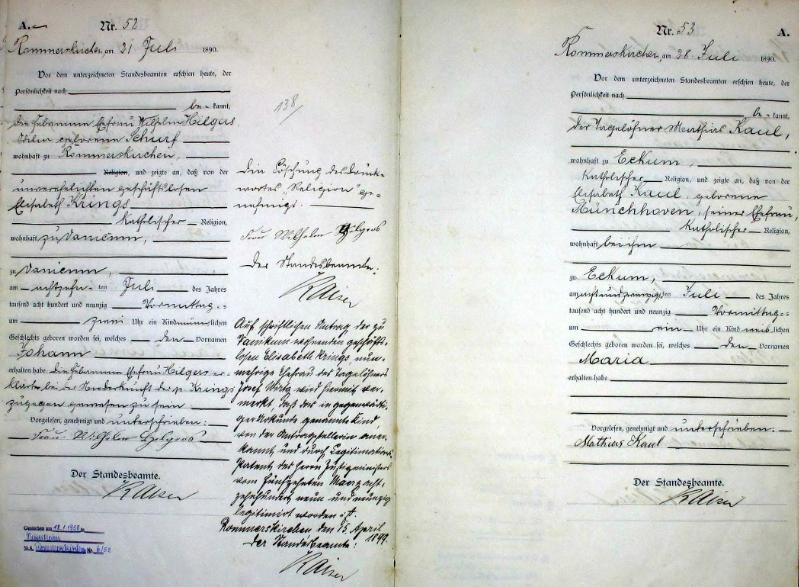 A.
Nr. 52
Rommerskirchen, am 21 Juli 1890.
Vor dem unterzeichneten Standesbeamten erschien heute, der
Persönlichkeit nach
be-kannt,
die Hebamme Ehefrau Wilhelm Hilgers,
geborene Schurf
wohnhaft zu Rommerskirchen,
Religion, und zeigte an, daß von der
unverehelichten geschäftslosen
Elisabeth Krings
katholischer Religion,
wohnhaft zu Vanicum,
zu Vanicum
am achtzehnten Juli des Jahres
tausend acht hundert und neunzig Vormittags
um zwei Uhr ein Kind männlichen
Geschlechts geboren worden sei, welches den Vornamen
Johann
erhalten habe. Die Hebamme Ehefrau Hilgers er-
klärte, bei der Niederkunft der p. Krings
zugegen gewesen zu sein
Vorgelesen, genehmigt und unterschrieben:
Frau Wilhelm Hilgers
Der Standesbeamte.
Kaiser
138/
Die Löschung des Druck-
wortes "Religion" ge-
nehmigt.
Frau Wilhelm Hilgers
Der Standesbeamte:
Kaiser
Auf schriftlichen Antrag der zu
Vanikum wohnenden geschäft-
slosen Elisabeth Krings, nun-
mehrige Ehefrau des Tagelöhners
Josef Wirtz wird hiermit ver-
merkt, daß das in gegenwärti-
ger Urkunde genannte Kind,
von der Antragstellerin aner-
kannt und durch Legitimations
Patent des Herrn Justizministers
vom fünfzehnten März acht-
zehnhundert neun und neunzig
legitimirt worden ist.
Rommerskirchen den 15. April 1899.
Der Standesbeamte:
Kaiser
Nr. 53
A.
Rommerskirchen, am 28 Juli 1890.
Vor dem unterzeichneten Standesbeamten erschien heute, der
Persönlichkeit nach
be-kannt,
der Tagelöhner Mathias Kaul,
wohnhaft zu Eckum,
katholischer Religion, und zeigte an, daß von der
Elisabeth Kaul, geborene
Münchhoven, seiner Ehefrau,
katholischer Religion,
wohnhaft bei ihm
zu Eckum,
am achtundzwanzigsten Juli des Jahres
tausend acht hundert und neunzig Vormittags
um ein Uhr ein Kind weiblichen
Geschlechts geboren worden sei, welches den Vornamen
Maria
erhalten habe
Vorgelesen, genehmigt und unterschrieben.
Mathias Kaul
Der Standesbeamte.
Kaiser